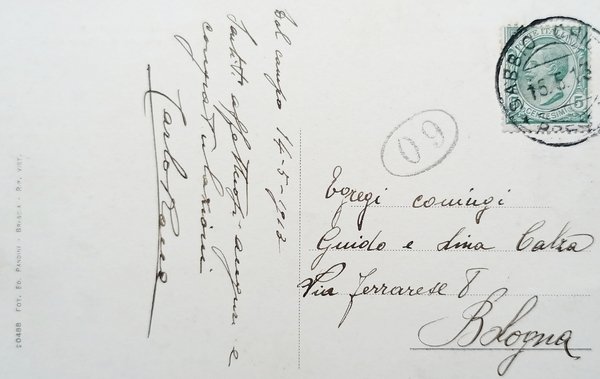 Dal campo 14-5-912
Sentiti affettuosi auguri e
congratulazioni
Carlo
Egregi coniugi
Guido e Lina Calza
Via Ferrarese 8
Bologna
60
SABBIO
15.5.12
POSTE ITALIANE
5
CENTESIMI
20488 FOT. ED. PANDINI - BRESCIA - RIP. VIET.